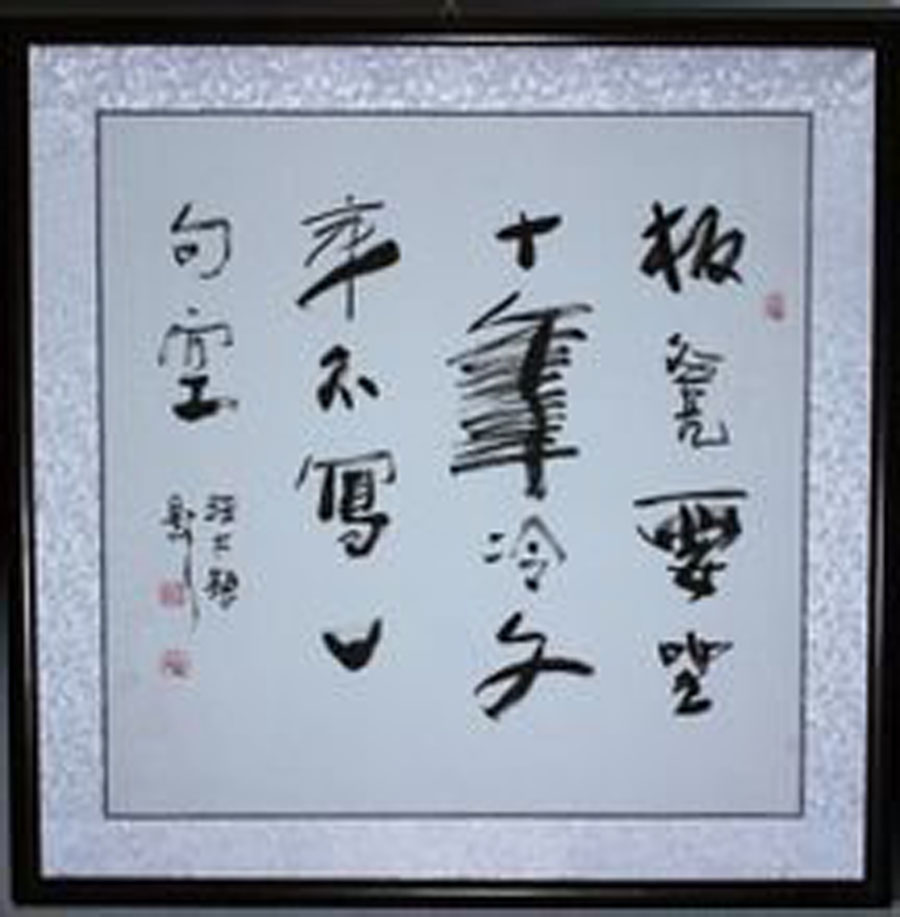 板凳要坐
十年冷文
章不寫一
句空